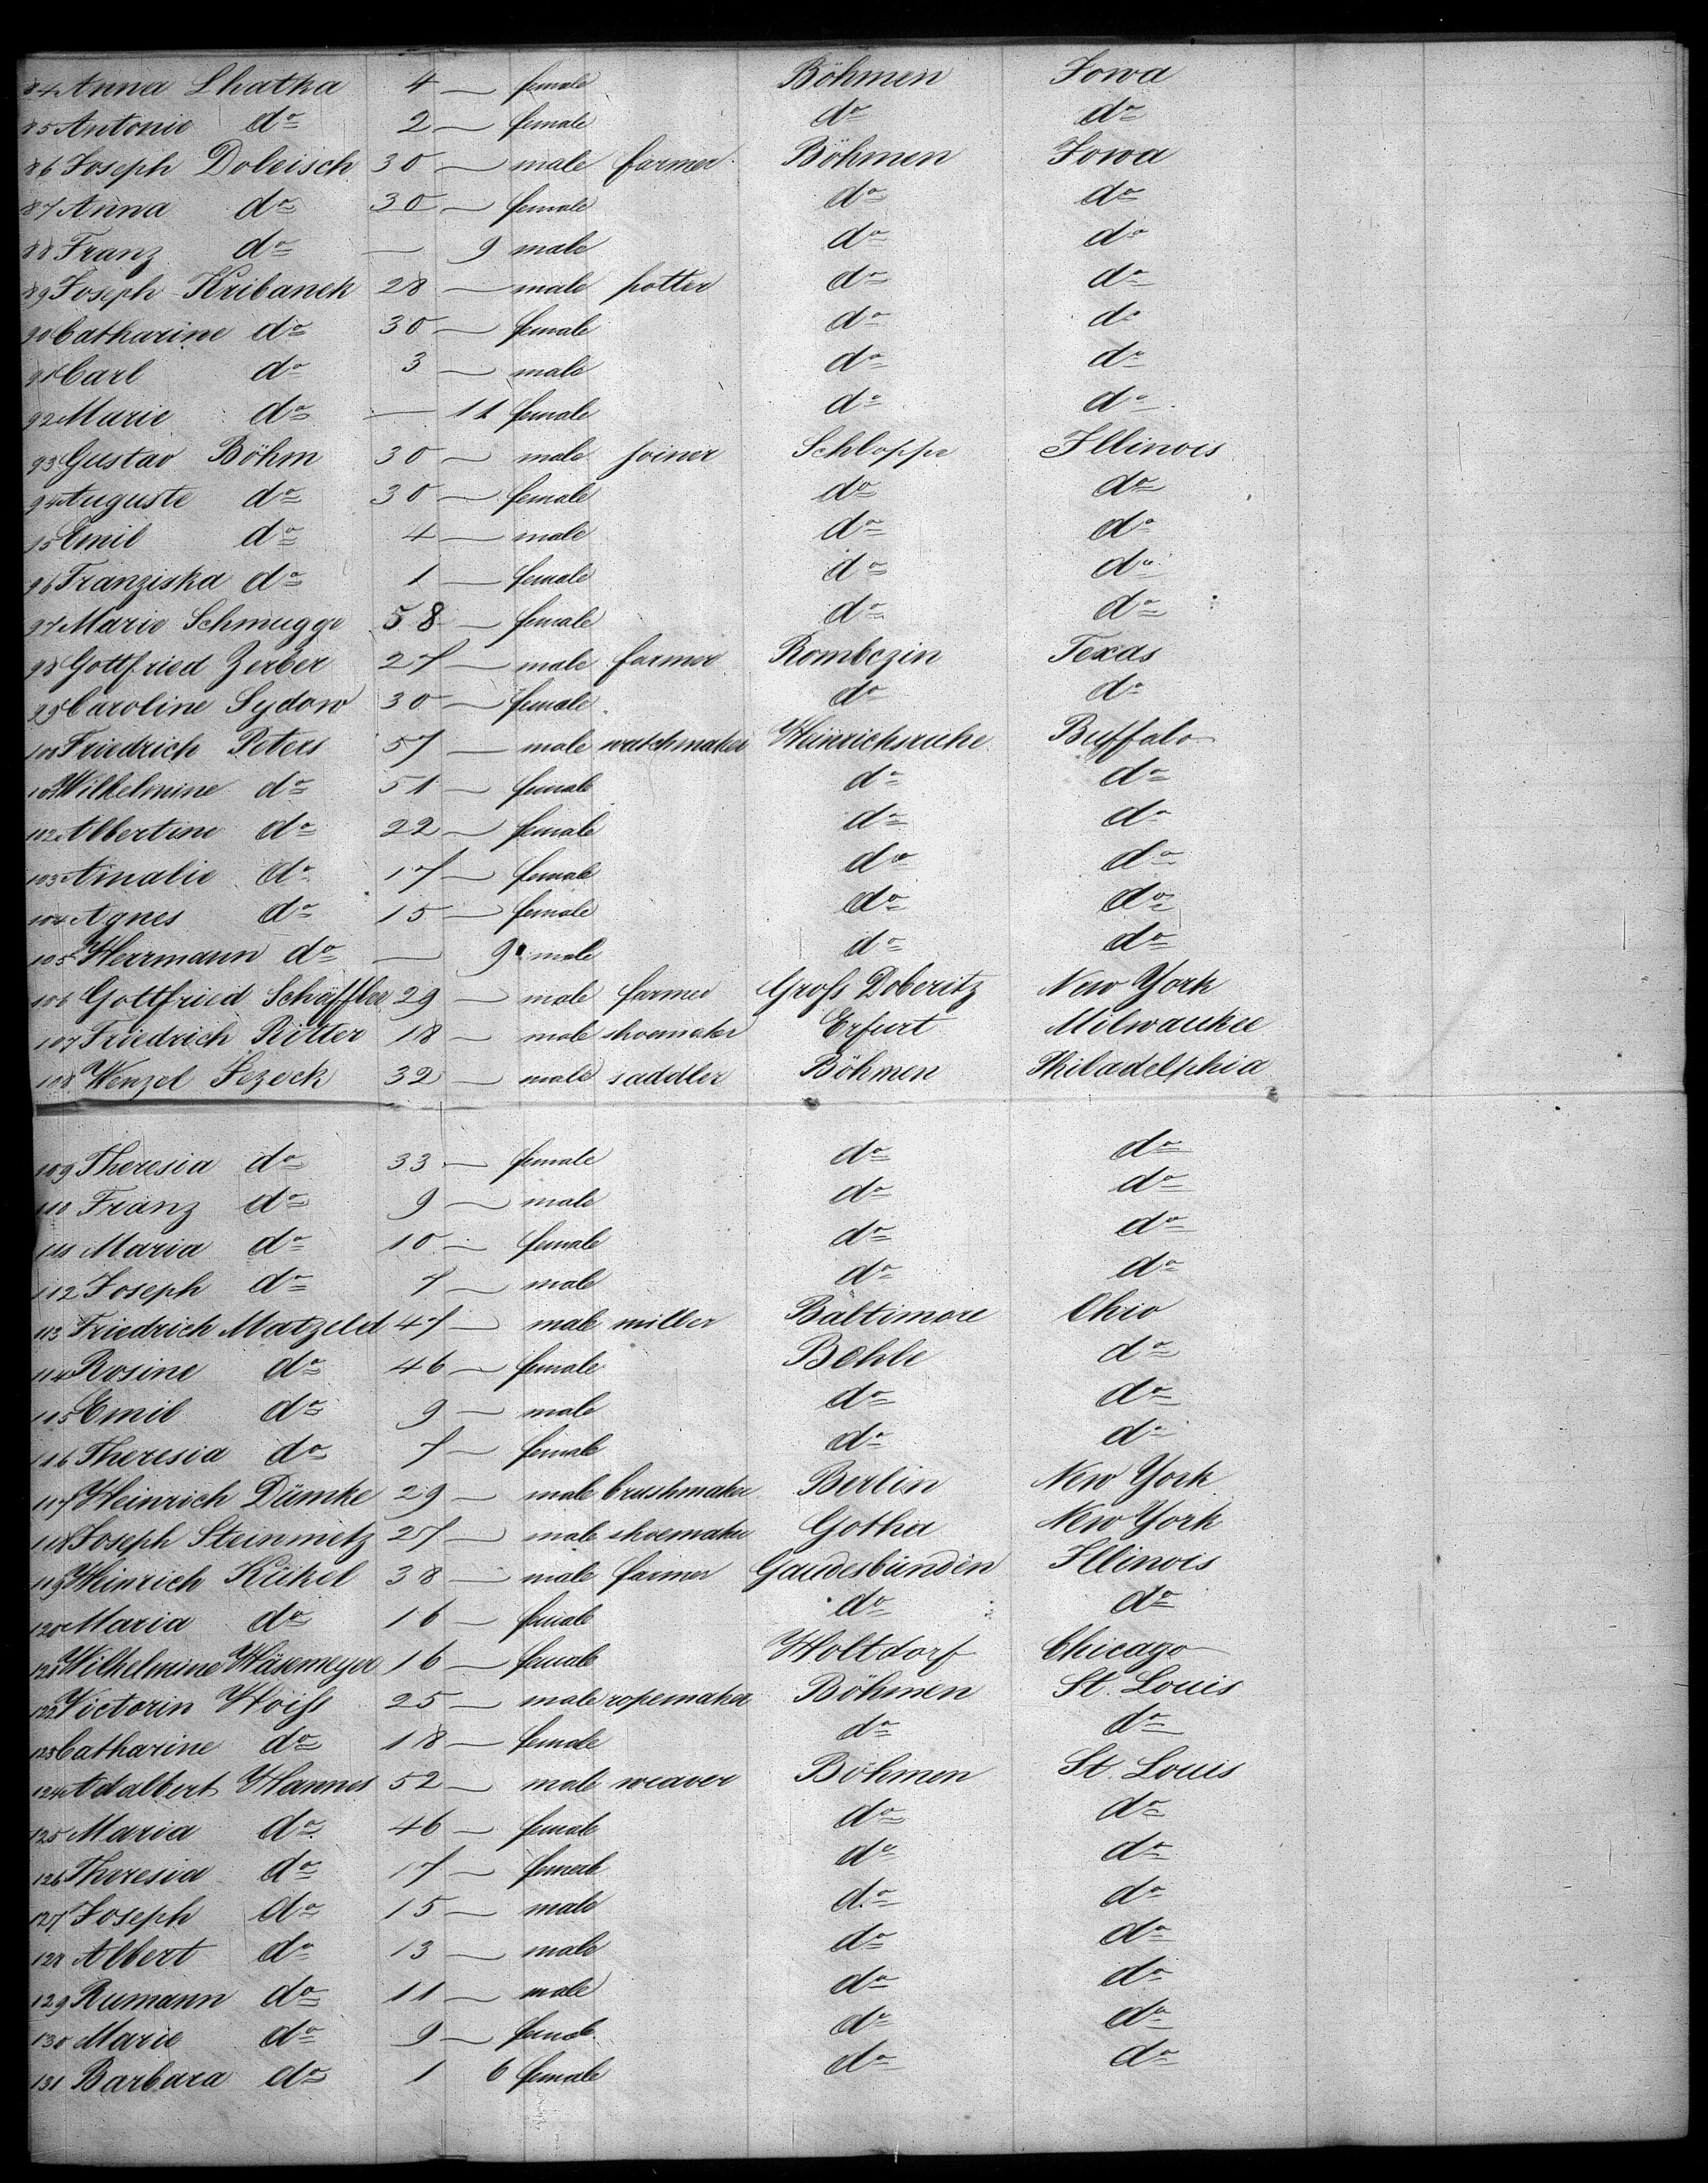 84 Anna Lhatka 4 — female Böhmen Iowa
85 Antonie do 2 — female do do
86 Joseph Doleisch 30 — male farmer Böhmen Iowa
87 Anna do 30 — female do do
88 Franz do — 9 male do do
89 Joseph Kribanek 28 — male potter do do
90 Catharine do 30 — female do do
91 Carl do 3 — male do do
92 Marie do — 11 female do do
93 Gustav Böhm 30 — male joiner Schloppe Illinois
94 Auguste do 30 — female do do
95 Emil do 4 — male do do
96 Franziska do 1 — female do do
97 Marie Schmugge 58 — female do do
98 Gottfried Zerber 27 — male farmer Rombczin Texas
99 Caroline Sydow 30 — female do do
100 Friedrich Peters 57 — male watchmaker Heinrichsruhe Buffalo
101 Wilhelmine do 51 — female do do
102 Albertine do 22 — female do do
103 Amalie do 17 — female do do
104 Agnes do 15 — female do do
105 Herrmann do — 9 male do do
106 Gottfried Schäffler 29 — male farmer Gross Doberitz New York
107 Friedrich Ritter 18 — male shoemaker Erfurt Milwaukee
108 Wenzel Jezeck 32 — male saddler Böhmen Philadelphia
109 Theresia do 33 — female do do
110 Franz do 9 — male do do
111 Maria do 10 — female do do
112 Joseph do 7 — male do do
113 Friedrich Matzeld 47 — male miller Baltimore Ohio
114 Rosine do 46 — female Behle do
115 Emil do 9 — male do do
116 Theresia do 7 — female do do
117 Heinrich Dümke 29 — male brushmaker Berlin New York
118 Joseph Steinmetz 27 — male shoemaker Gotha New York
119 Heinrich Kükel 38 — male farmer Gaudesbünden Illinois
120 Maria do 16 — female do do
121 Wilhelmine Häsemeyer 16 — female Holtdorf Chicago
122 Victorin Hoiss 25 — male ropemaker Böhmen St. Louis
123 Catharine do 18 — female do do
124 Adalbert Hannes 52 — male weaver Böhmen St. Louis
125 Maria do 46 — female do do
126 Theresia do 17 — female do do
127 Joseph do 15 — male do do
128 Albert do 13 — male do do
129 Rumann do 11 — male do do
130 Marie do 9 — female do do
131 Barbara do 1 6 female do do